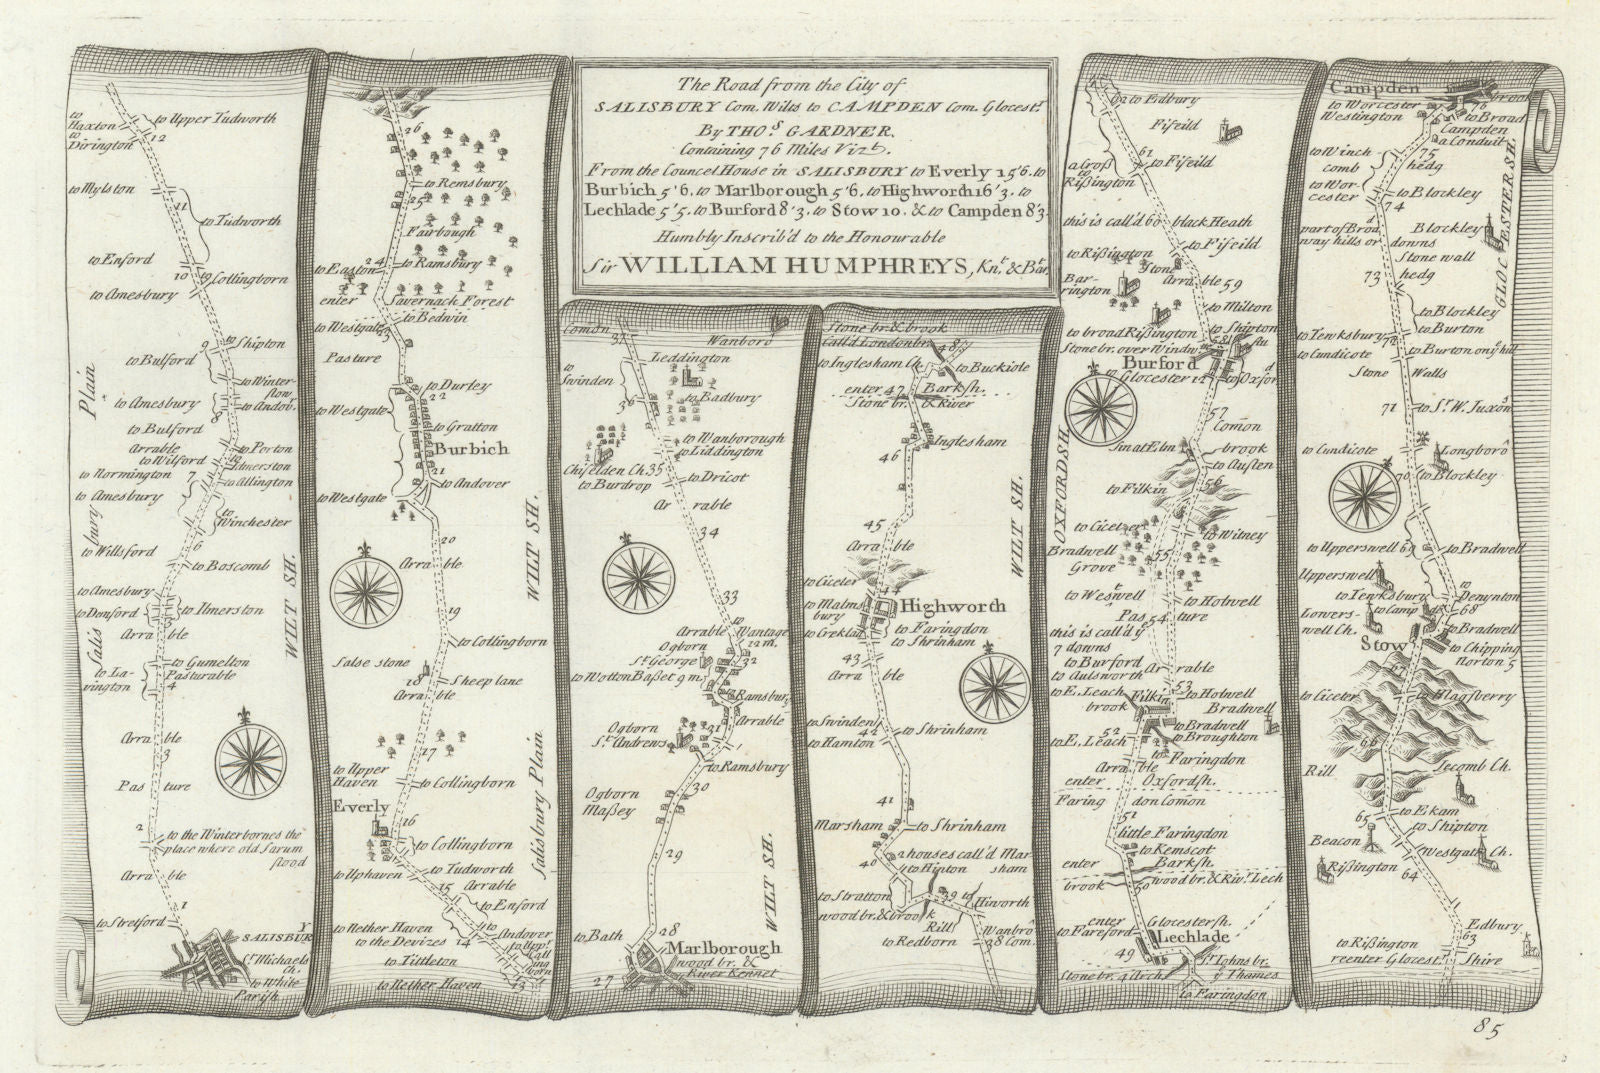 The Road from the City of
SALISBURY Com. Wilts to CAMPDEN Com. Glocest.r
By THO.s GARDNER.
Containing 76 Miles Viz.t
From the Councel House in SALISBURY to Everly 15'6. to
Burbich 5'6. to Marlborough 5'6. to Highworth 16'3. to
Lechlade 5'5. to Burford 8'3. to Stow 10. & to Campden 8'3.
Humbly Inscrib'd to the Honourable
Sir WILLIAM HUMPHREYS, Kn.t & Bar.t
to Haxton
to Dirington
to Upper Tudworth
12
to Mylston
11
to Tudworth
to Enford
10
to Collingborn
to Amesbury
9
to Shipton
to Bulford
to Winterslow
to Amesbury
to Andov.r
to Bulford
Arrable
to Porton
to Wilford
Idmerston
to Normington
7
to Allington
to Amesbury
to Winchester
6
to Willsford
to Boscomb
to Amesbury
to Denford
to Ilmerston
5
Arrable
to Lavington
to Gumelton
Pasturable
4
Arrable
3
Pasture
2
to the Winterbornes the
place where old Sarum
stood
Arrable
1
to Stretford
SALISBURY
S.t Michaels
Ch.
to White
Parish
Salisbury Plain
WILT SH.
26
to Remsbury
25
Fairbough
to Easton
24
to Ramsbury
enter
Savernack Forest
to Bedwin
to Westgate
23
Pasture
to Durley
22
to Westgate
to Gratton
Burbich
21
to Westgate
to Andover
20
Arrable
19
to Collingborn
Salse stone
18
Sheep lane
Arrable
17
to Upper
Haven
to Collingborn
Everly
16
to Collingborn
to Uphaven
to Tudworth
15
Arrable
to Enford
to Nether Haven
to the Devizes
14
to Andover
to Upp.r
Collingborn
to Tittleton
to Nether Haven
13
WILT SH.
Salisbury Plain
Comon
37
Wanboro
Leddington
to Swinden
36
to Badbury
to Wanborough
to Liddington
Chiselden Ch.
35
to Burdrop
to Dricot
Arrable
34
33
Arrable
to Wantage
12 m.
Ogborn
S.t George
32
to Wotton Basset 9 m.
Ramsbury
Arrable
Ogborn
S.t Andrews
31
to Ramsbury
30
Ogborn
Massey
29
28
to Bath
Marlborough
wood br. &
River Kennet
27
WILT SH.
Stone br. & brook
Call'd London br.
48
to Inglesham Ch.
to Buckiole
enter 47 Barksh.
Stone br. & River
Inglesham
46
45
Arrable
to Ciceter
44
to Malmsbury
Highworth
to Creklad
to Faringdon
to Shrinham
43
Arrable
to Swinden
42
to Shrinham
to Hamton
41
Marsham
to Shrinham
40
2 houses call'd Marsham
to Hinton
to Stratton
wood br. & brook
39
to Hiworth
Rill
Wanbro
to Redborn
38 Com.
WILT SH.
62 to Edbury
Fifeild
61
to Fifeild
a Gross
to Rissington
this is call'd 60 black Heath
to Rissington
to Fifeild
Stone
Arrable 59
Barrington
to Milton
to broad Rissington
to Shipton
Stone br. over Windr.
58
Burford
to Glocester
to Oxford
57
Comon
brook
to Austen
56
to Filkin
to Ciceter
to Witney
Bradwell
Grove
55
to Weswell
to Holwell
Pasture
54
this is call'd y
7 downs
to Burford
to Aulsworth
Arrable
53
to E. Leach
to Holwell
brook
Filkin
Bradwell
to Bradwell
to Broughton
52
to E. Leach
to Faringdon
Arrable
enter
Oxfordsh.
Faringdon Comon
51
little Faringdon
to Kemscot
enter
Barksh.
brook
50
wood br. & Riv.r Lech
enter
Glocestersh.
to Fareford
Lechlade
49
S.t Johns br.
Stone br. 4 Arch
y Thames
to Faringdon
OXFORDSH.
Campden
to Worcester
76
brook
Westington
to Broad
Campden
a Conduit
75
to Winchcomb
hedg
to Worcester
to Blockley
74
part of Broadway hills or downs
Blockley
Stone wall
73
hedg
to Blockley
to Tewksbury
to Burton
72
to Cundicote
to Burton on y hill
Stone Walls
71
to S.r W. Juxons
to Cundicote
Longboro
70
to Blockley
to Upperswell
69
to Bradwell
Upperswell
to Tewksbury
to Denynton
to Campde
68
Lowerswell Ch.
to Bradwell
Stow
to Chipping
Norton 5
67
to Ciceter
to Magsberry
66
Rill
Jecomb Ch.
to Ekam
65
to Shipton
Beacon
Westgate Ch.
Rissington
64
Edbury
to Rissington
63
reenter Glocest.r Shire
GLOCESTERSH.
85